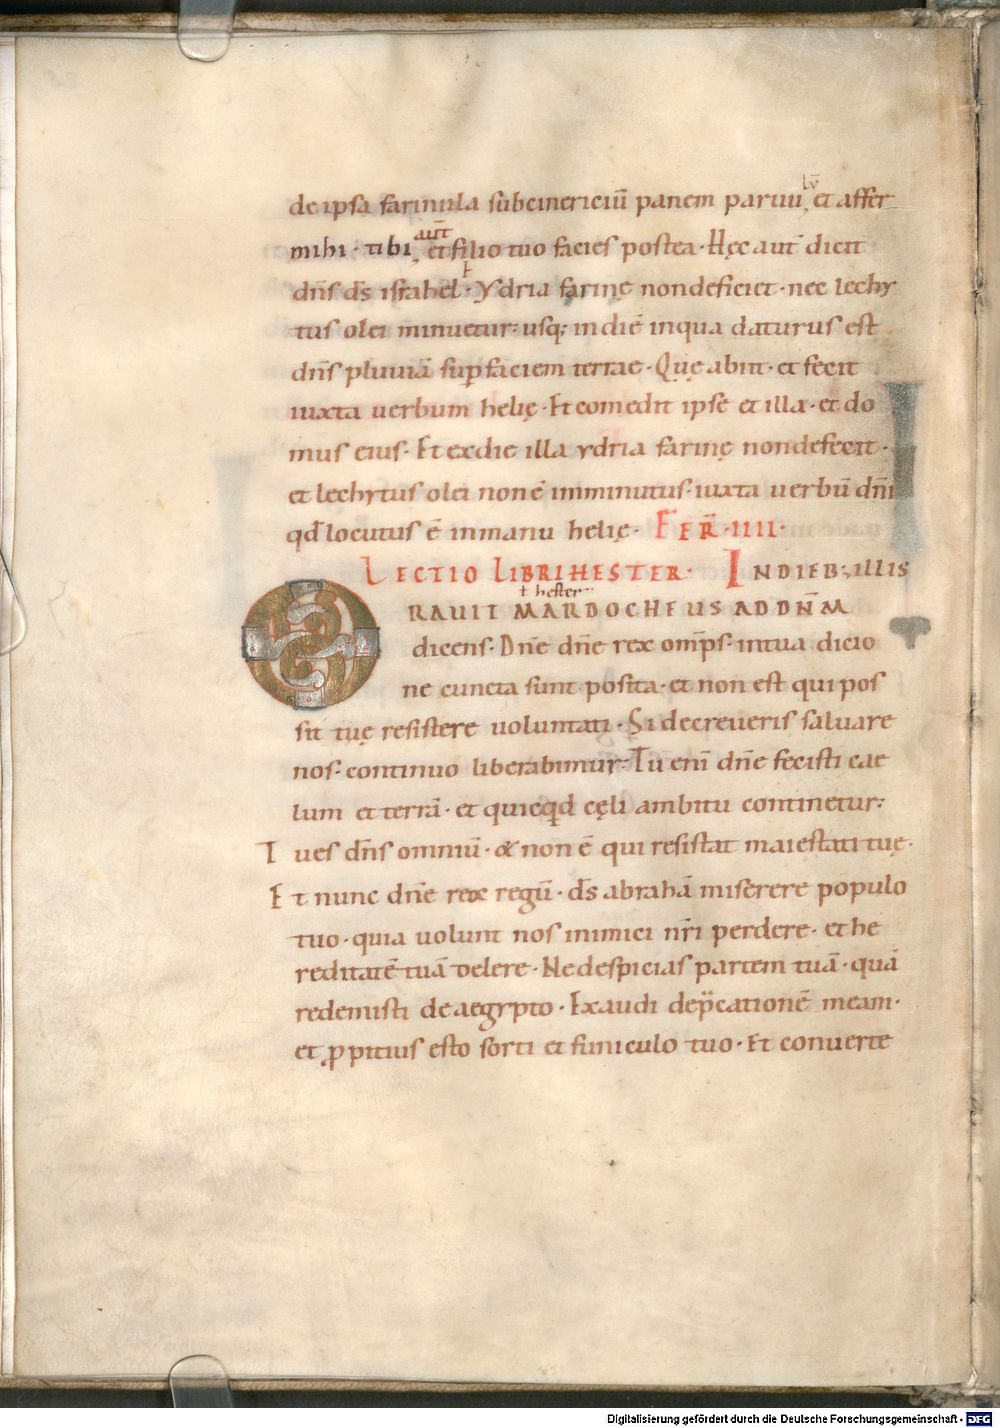 de ipsa farinula subcinericiū panem paruu, et affer
mihi · tibi, aut̄ et filio tuo facies postea · Hęc aut̄ dicit
dn̄s d̄s israhel · Ydria farinę non deficiet · nec lechy
tus olei minuetur · usq; in diē in qua daturus est
dn̄s pluuiā sup faciem terrae · Quę abiit · et fecit
iuxta uerbum helię · Et comedit ipse et illa · et do
mus eius · Et ex die illa ydria farinę non defecit ·
et lechytus olei non ē imminutus · iuxta uerbū dn̄i
qd̄ locutus ē in manu helię · FER̄ · IIII ·
LECTIO LIBRI HESTER · IN DIEB; ILLIS
ł hester
ORAUIT MARDOCHEUS AD DN̄M
dicens · Dn̄e dn̄e rex om̄ps · in tua dicio
ne cuncta sunt posita · et non est qui pos
sit tuę resistere uoluntati · Si decreueris saluare
nos · continuo liberabimur · Tu enī dn̄e fecisti cae
lum et terrā · et quicqd̄ cęli ambitu continetur ·
Tu es dn̄s omniū · & non ē qui resistat maiestati tuę ·
Et nunc dn̄e rex regū · d̄s abrahā miserere populo
tuo · quia uolunt nos inimici nr̄i perdere · et he
reditatē tuā delere · Ne despicias partem tuā · quā
redemisti de aegypto · Exaudi dep̄cationē meam ·
et ꝓpitius esto sorti et funiculo tuo · Et conuerte
Digitalisierung gefördert durch die Deutsche Forschungsgemeinschaft - DFG